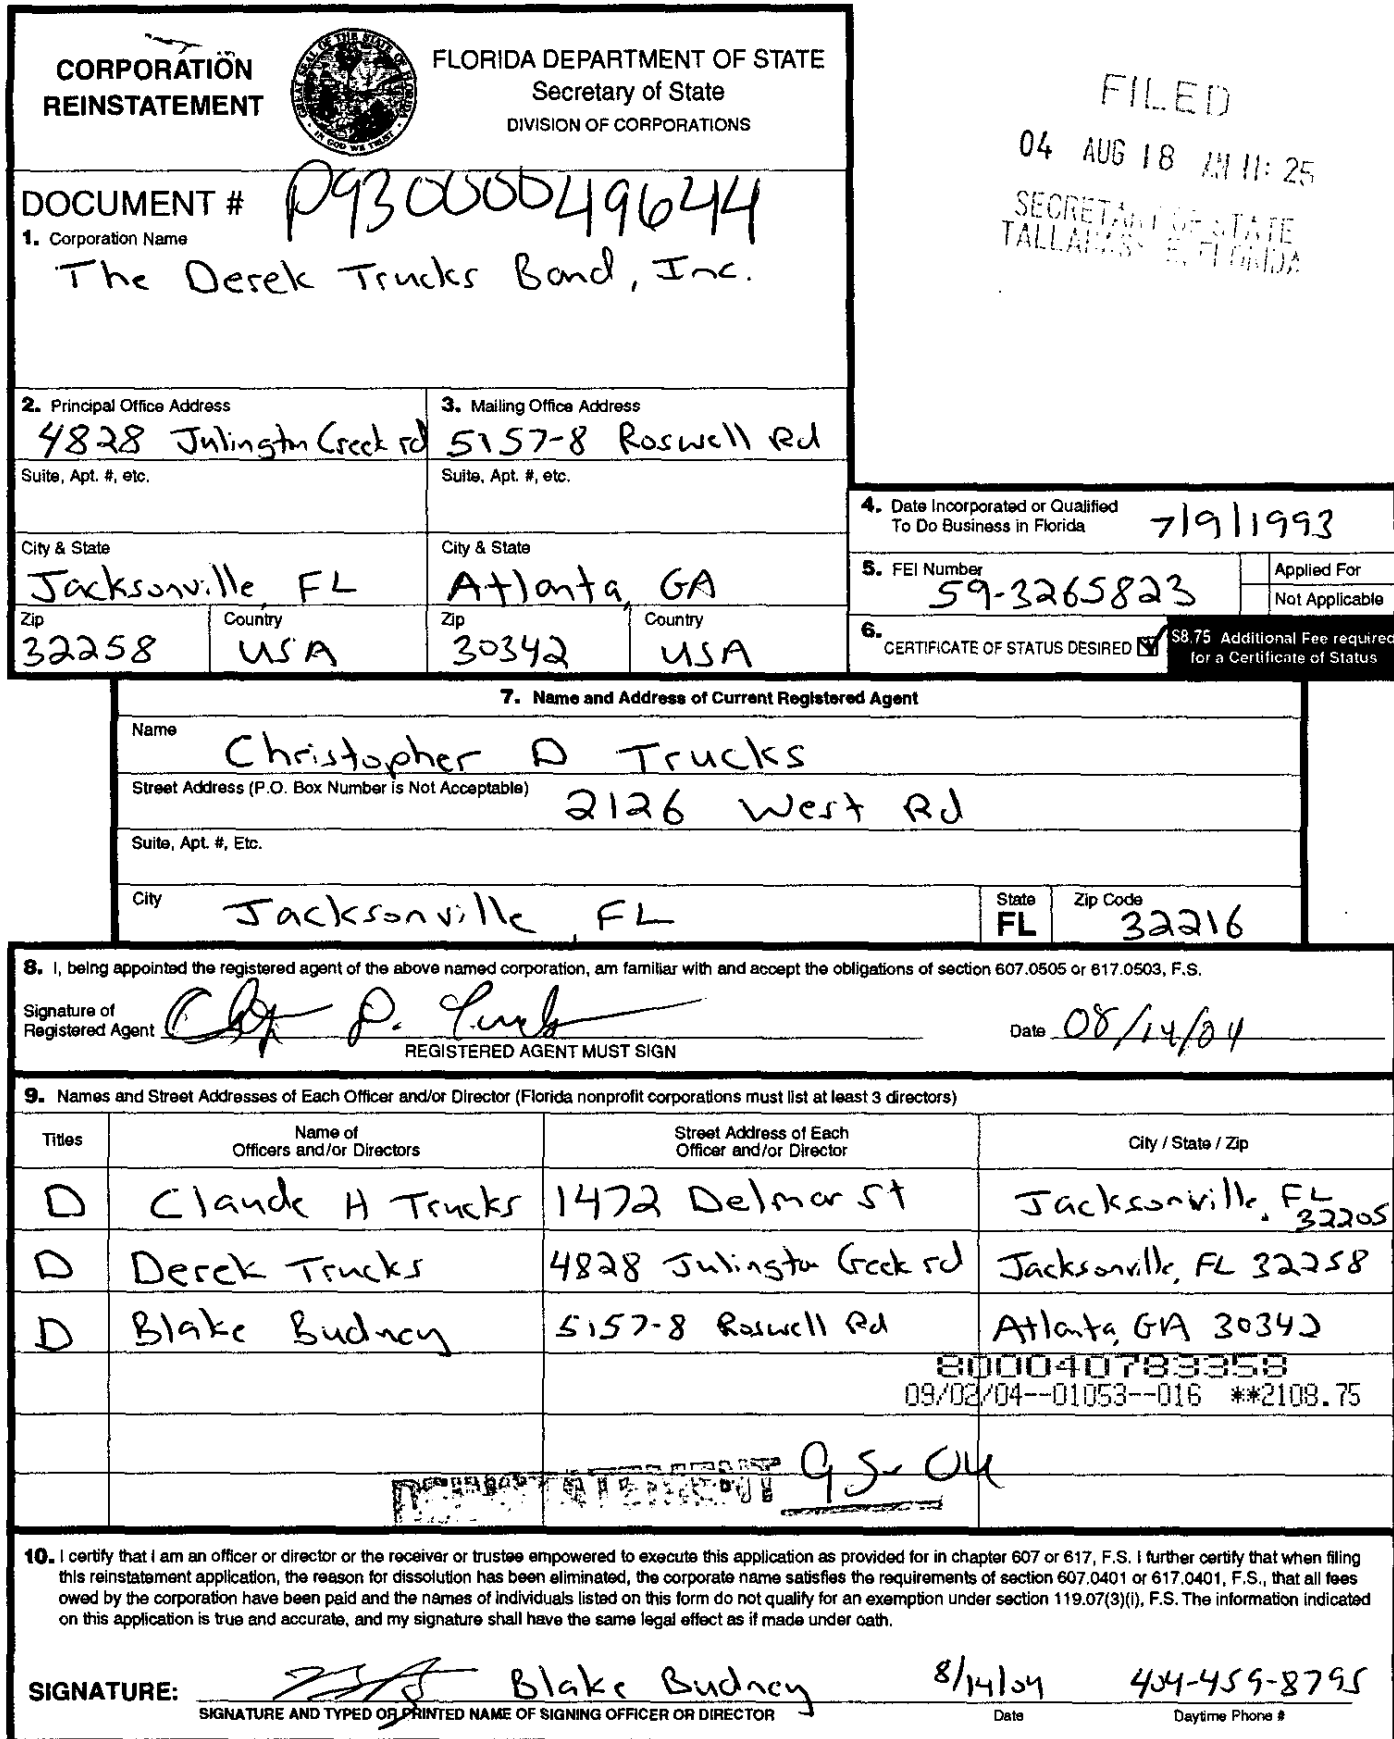 CORPORATION
REINSTATEMENT
GREAT SEAL OF THE STATE OF FLORIDA
IN GOD WE TRUST
FLORIDA DEPARTMENT OF STATE
Secretary of State
DIVISION OF CORPORATIONS
FILED
04 AUG 18 AM 11: 25
SECRETARY OF STATE
TALLAHASSEE, FLORIDA
DOCUMENT # P93000049644
1. Corporation Name
The Derek Trucks Band, Inc.
2. Principal Office Address
4828 Julington Creek rd
3. Mailing Office Address
5157-8 Roswell Rd
Suite, Apt. #, etc.
Suite, Apt. #, etc.
City & State
Jacksonville, FL
City & State
Atlanta, GA
Zip
32258
Country
USA
Zip
30342
Country
USA
4. Date Incorporated or Qualified
To Do Business in Florida
7/9/1993
5. FEI Number
59-3265823
Applied For
Not Applicable
6.
CERTIFICATE OF STATUS DESIRED
$8.75 Additional Fee required
for a Certificate of Status
7. Name and Address of Current Registered Agent
Name
Christopher D Trucks
Street Address (P.O. Box Number is Not Acceptable)
2126 West Rd
Suite, Apt. #, Etc.
City
Jacksonville, FL
State
FL
Zip Code
32216
8. I, being appointed the registered agent of the above named corporation, am familiar with and accept the obligations of section 607.0505 or 617.0503, F.S.
Signature of
Registered Agent
D. Trucks
REGISTERED AGENT MUST SIGN
Date 08/14/04
9. Names and Street Addresses of Each Officer and/or Director (Florida nonprofit corporations must list at least 3 directors)
Titles
Name of
Officers and/or Directors
Street Address of Each
Officer and/or Director
City / State / Zip
D Claude H Trucks 1472 Delmar St Jacksonville, FL 32205
D Derek Trucks 4828 Julington Creek rd Jacksonville, FL 32258
D Blake Budney 5157-8 Roswell Rd Atlanta, GA 30342
800040783358
09/02/04--01053--016 **2108.75
REINSTATEMENT 95-04
10. I certify that I am an officer or director or the receiver or trustee empowered to execute this application as provided for in chapter 607 or 617, F.S. I further certify that when filing
this reinstatement application, the reason for dissolution has been eliminated, the corporate name satisfies the requirements of section 607.0401 or 617.0401, F.S., that all fees
owed by the corporation have been paid and the names of individuals listed on this form do not qualify for an exemption under section 119.07(3)(i), F.S. The information indicated
on this application is true and accurate, and my signature shall have the same legal effect as if made under oath.
SIGNATURE: Blake Budney 8/14/04 404-459-8795
SIGNATURE AND TYPED OR PRINTED NAME OF SIGNING OFFICER OR DIRECTOR
Date
Daytime Phone #